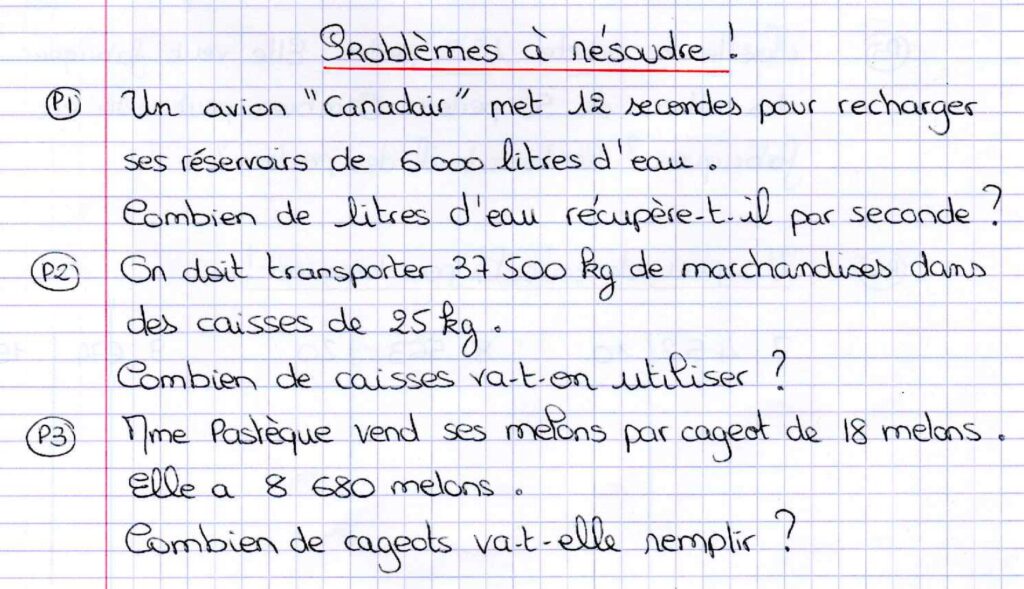 Problèmes à résoudre !
P1 Un avion "Canadair" met 12 secondes pour recharger
ses réservoirs de 6 000 litres d'eau .
Combien de litres d'eau récupère-t-il par seconde ?
P2 On doit transporter 37 500 kg de marchandises dans
des caisses de 25 kg .
Combien de caisses va-t-on utiliser ?
P3 Mme Pastèque vend ses melons par cageot de 18 melons .
Elle a 8 680 melons .
Combien de cageots va-t-elle remplir ?